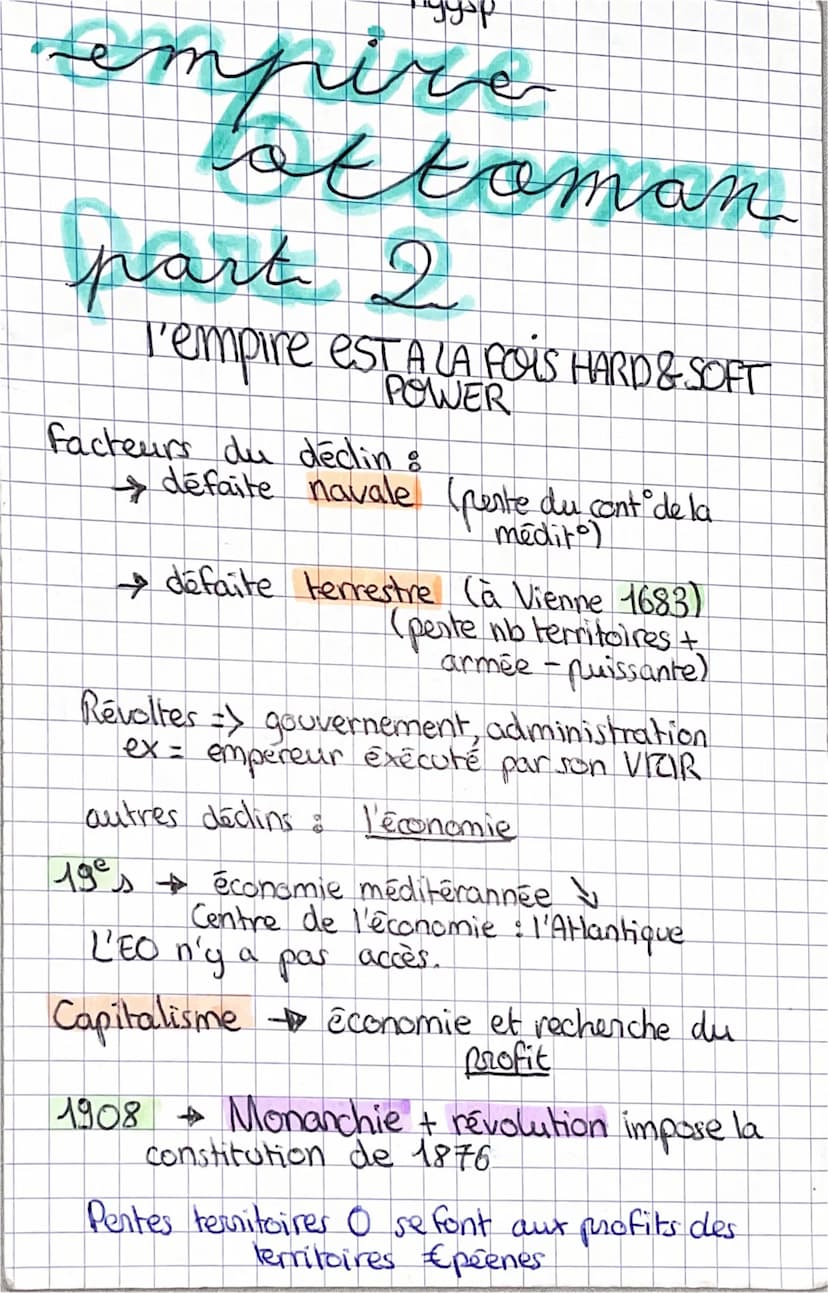 hggsp
empire
ottoman
part 2
l'empire EST A LA FOIS HARD & SOFT
POWER
Facteurs du déclin :
→ défaite navale (perte du cont° de la
médit°)
→ défaite terrestre (à Vienne 1683)
(perte nb territoires +
armée - puissante)
Révoltes => gouvernement, administration
ex = empereur éxécuté par son VIZIR
autres déclins : l'économie
19e s → économie méditérannée ↘
Centre de l'économie : l'Atlantique
L'EO n'y a pas accès.
Capitalisme → économie et recherche du
profit
1908 → Monarchie + révolution impose la
constitution de 1876
Pertes territoires O se font aux profits des
territoires €péenes